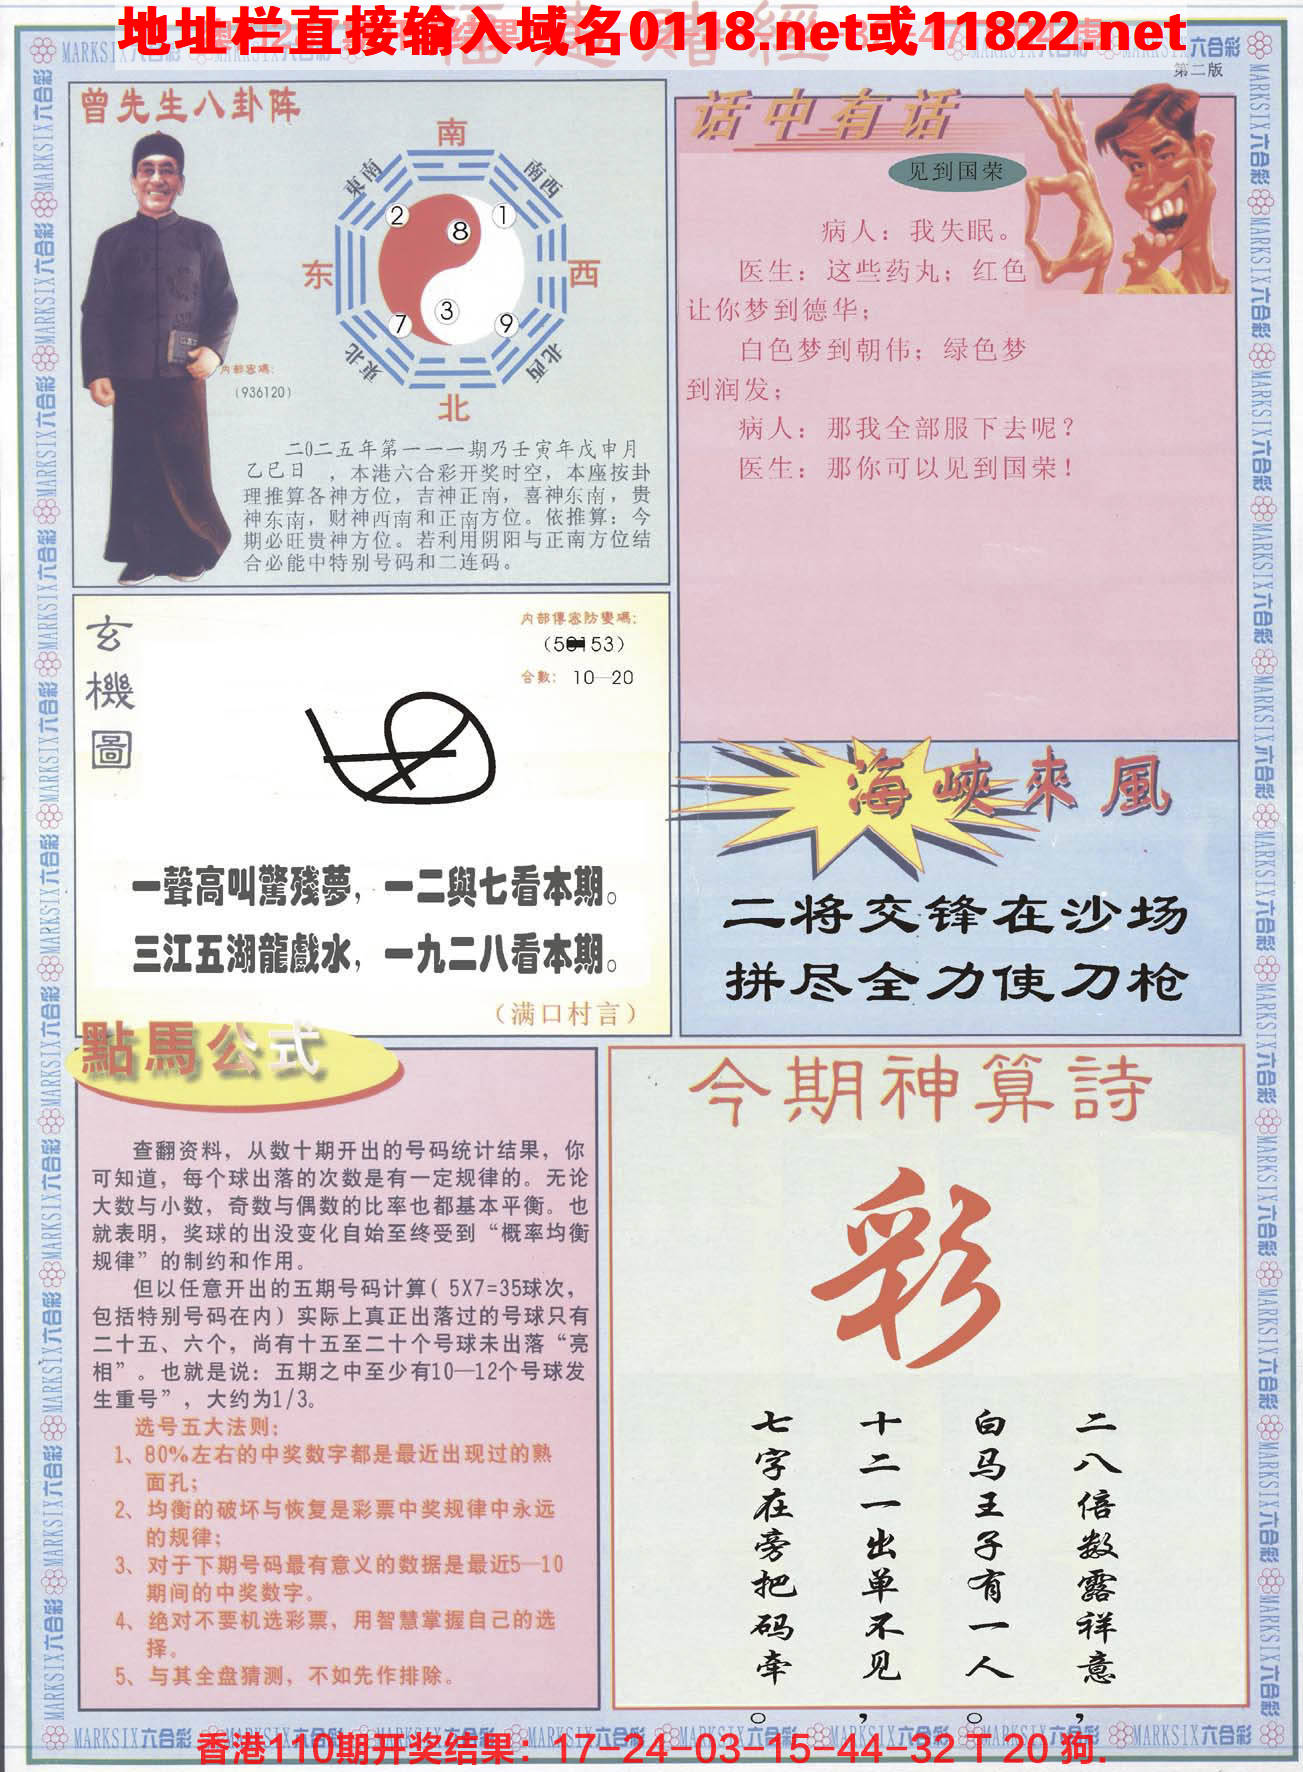 地址栏直接输入域名0118.net或11822.net
第二版
曾先生八卦阵
南
東南
南西
2
1
8
东
西
3
7
9
東北
北西
北
内部密碼:
(936120)
二0二五年第一一一期乃壬寅年戊申月
乙巳日 ，本港六合彩开奖时空，本座按卦
理推算各神方位，吉神正南，喜神东南，贵
神东南，财神西南和正南方位。依推算：今
期必旺贵神方位。若利用阴阳与正南方位结
合必能中特别号码和二连码。
话中有话
见到国荣
病人：我失眠。
医生：这些药丸；红色
让你梦到德华；
白色梦到朝伟；绿色梦
到润发；
病人：那我全部服下去呢？
医生：那你可以见到国荣！
玄機圖
内部傳密防變碼:
合數： 10—20
一聲高叫驚殘夢，一二與七看本期。
三江五湖龍戲水，一九二八看本期。
（满口村言）
海峽來風
二将交锋在沙场
拼尽全力使刀枪
點馬公式
查翻资料，从数十期开出的号码统计结果，你
可知道，每个球出落的次数是有一定规律的。无论
大数与小数，奇数与偶数的比率也都基本平衡。也
就表明，奖球的出没变化自始至终受到“概率均衡
规律”的制约和作用。
但以任意开出的五期号码计算( 5X7=35球次，
包括特别号码在内) 实际上真正出落过的号球只有
二十五、六个，尚有十五至二十个号球未出落“亮
相”。也就是说：五期之中至少有10—12个号球发
生重号”，大约为1/3。
选号五大法则：
1、80%左右的中奖数字都是最近出现过的熟
面孔；
2、均衡的破坏与恢复是彩票中奖规律中永远
的规律；
3、对于下期号码最有意义的数据是最近5—10
期间的中奖数字。
4、绝对不要机选彩票，用智慧掌握自己的选
择。
5、与其全盘猜测，不如先作排除。
今期神算詩
彩
二八倍数露祥意，
白马王子有一人。
十二一出单不见，
七字在旁把码牵。
香港110期开奖结果：17-24-03-15-44-32 T 20 狗.